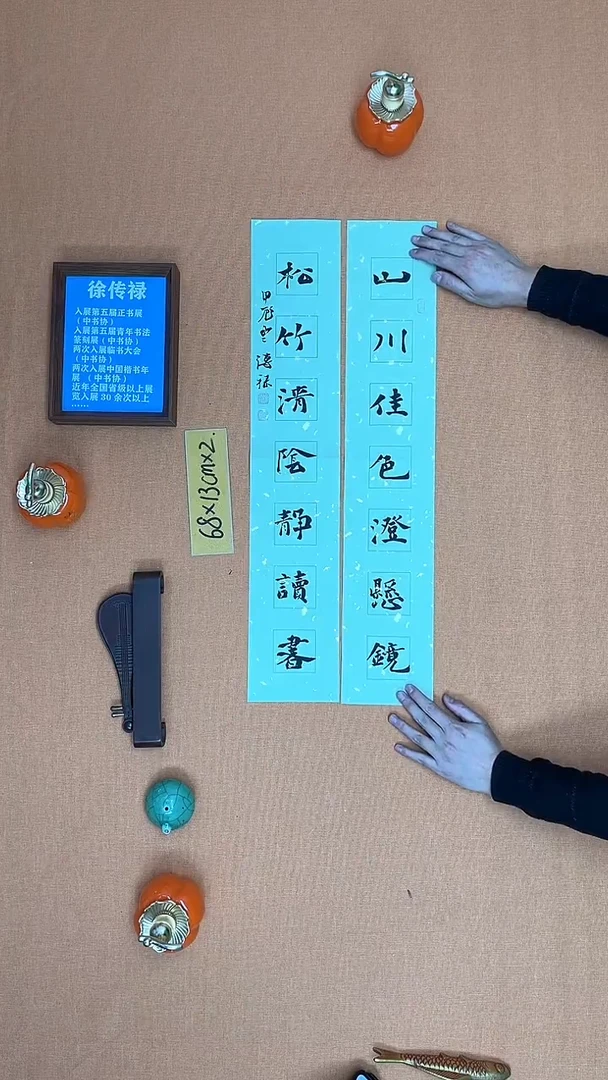 山川佳色澄懸鏡
松竹清陰靜讀書
甲辰 傳祿
徐传禄
入展第五届正书展
（中书协）
入展第五届青年书法
篆刻展（中书协）
两次入展临书大会
（中书协）
两次入展中国楷书年
展 （中书协）
近年全国省级以上展
览入展 30 余次以上
......
68×13cm×2.